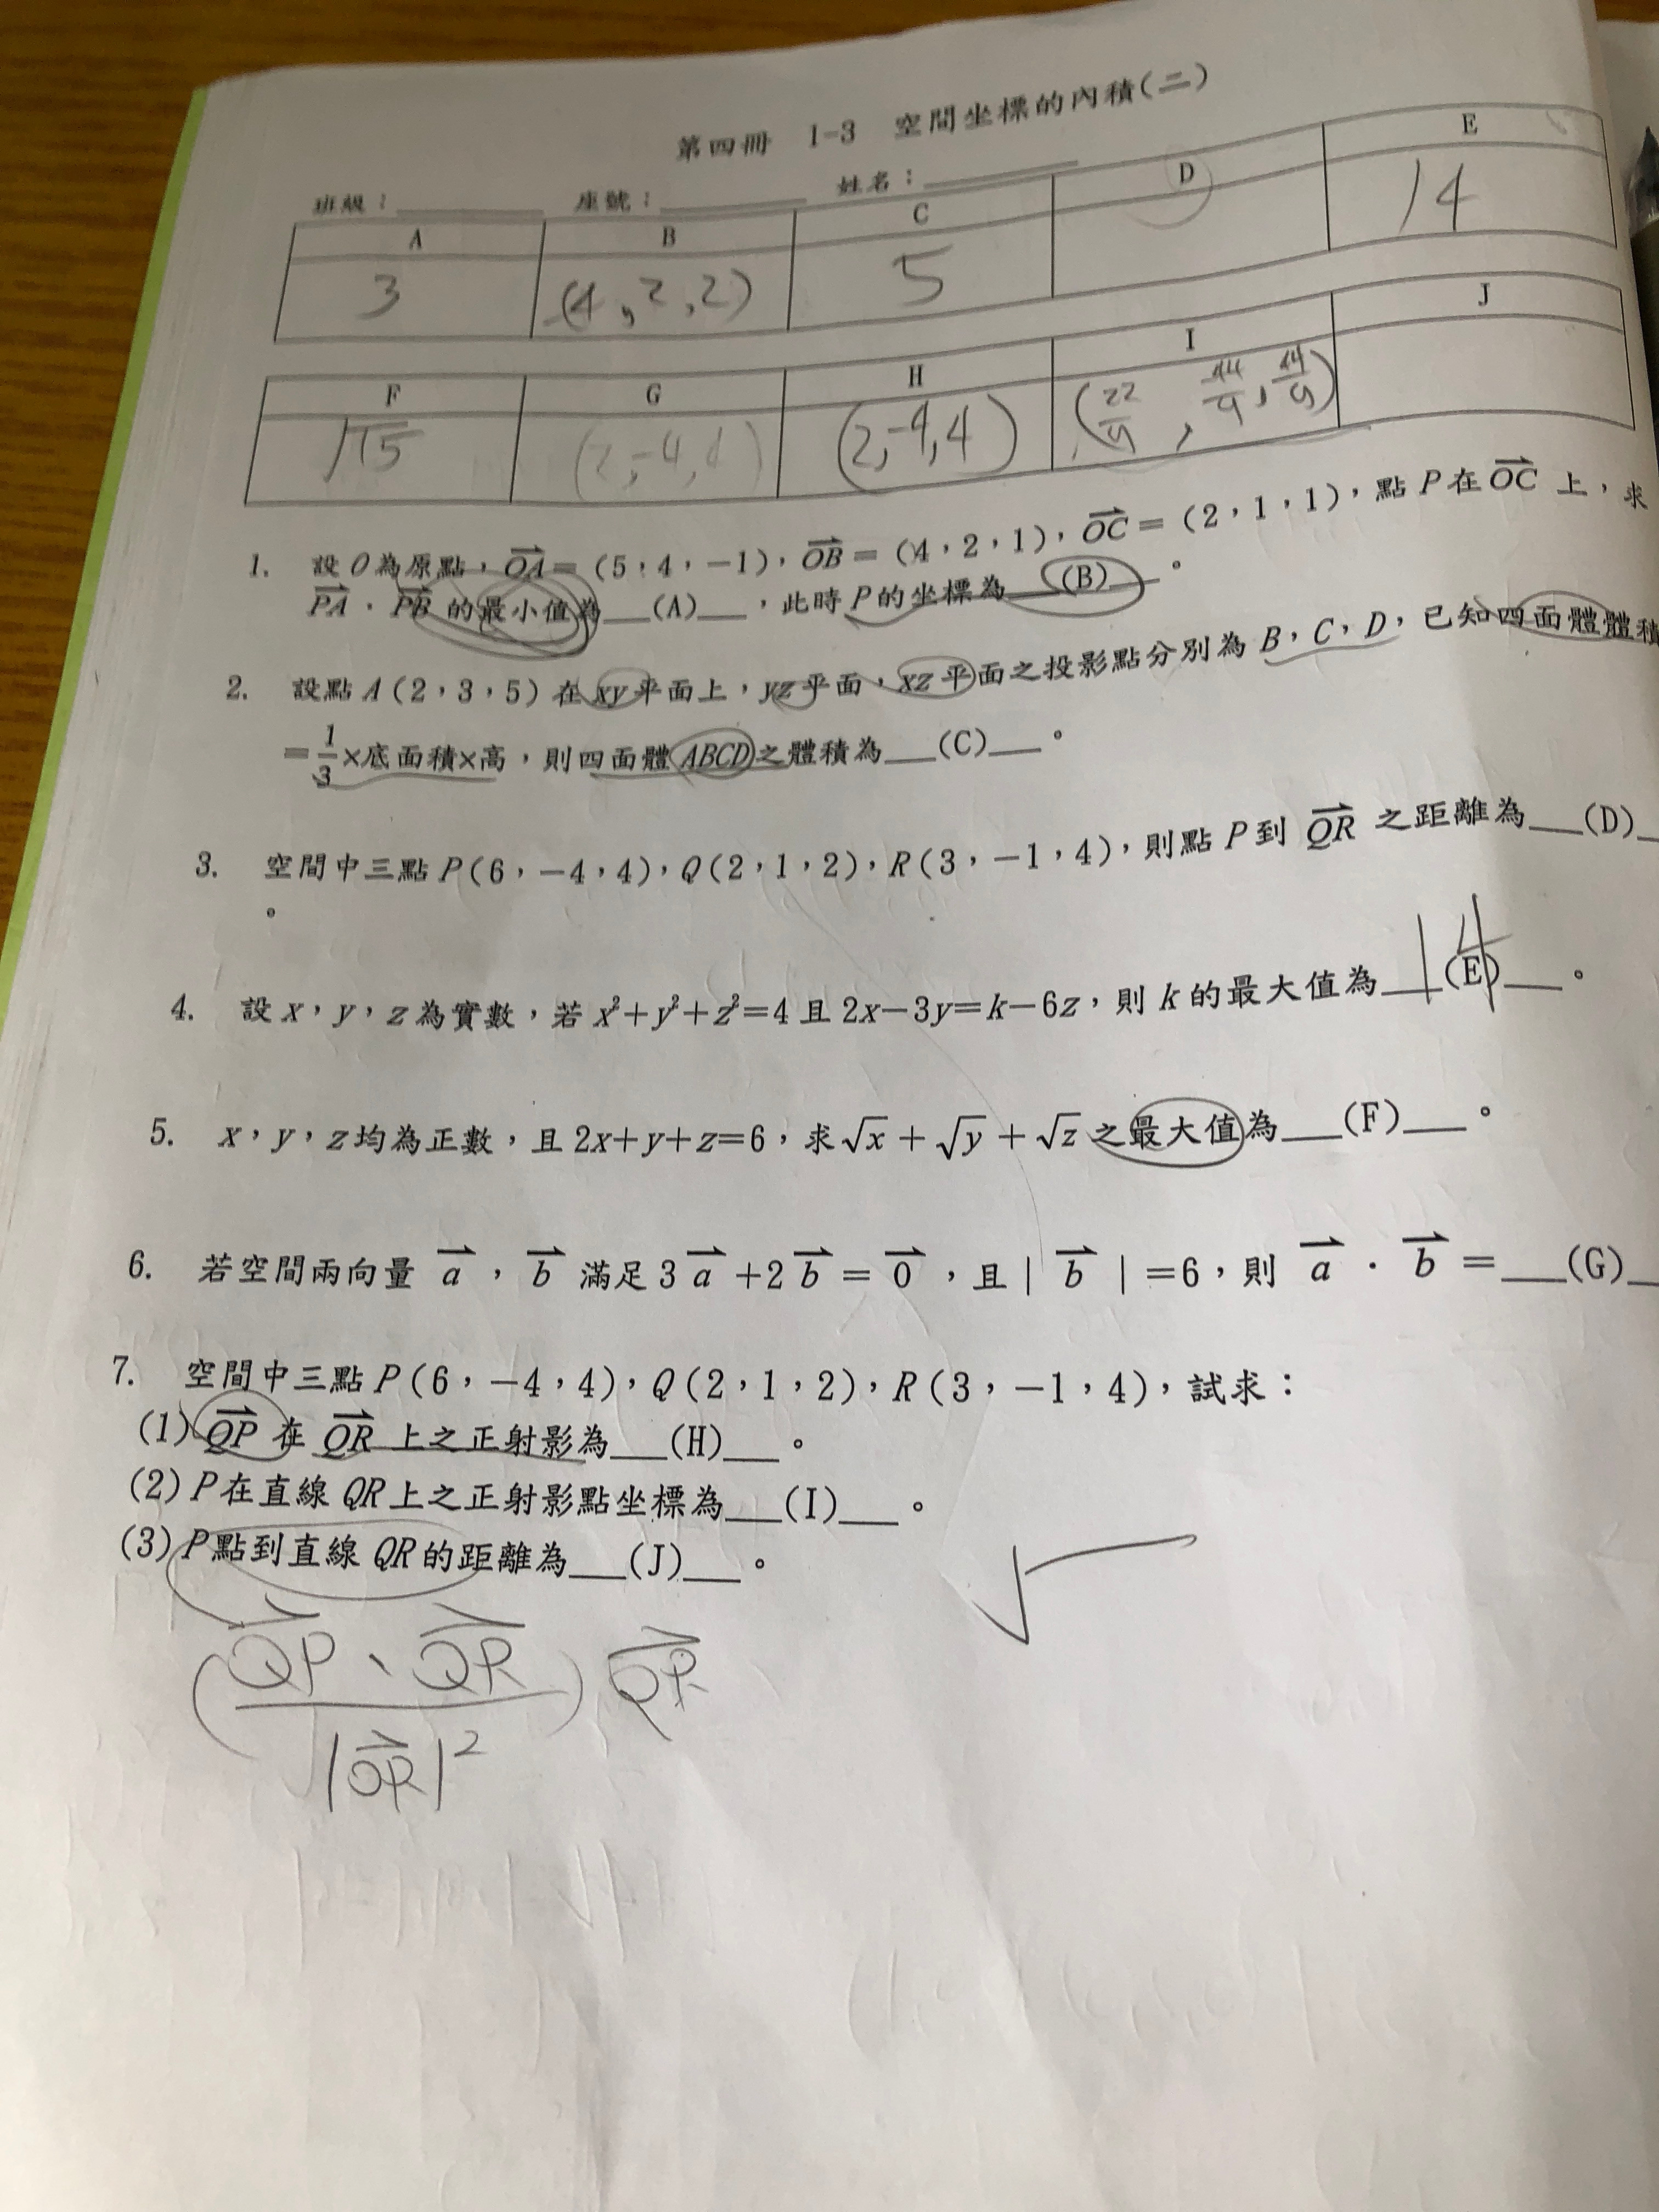 第四冊 1-3 空間坐標的內積(二)
班級：______ 座號：______ 姓名：______
A B C D E
3 (4,2,2) 5 14
F G H I J
√15 (2,-4,4) (2,-4,4) (22/9, 44/9, 44/9)
1. 設O為原點，OA=(5，4，-1)，OB=(4，2，1)，OC=(2，1，1)，點P在OC上，求
PA．PB的最小值為___(A)___，此時P的坐標為___(B)___。
2. 設點A(2，3，5)在xy平面上，yz平面，xz平面之投影點分別為B，C，D，已知四面體體積
=1/3×底面積×高，則四面體ABCD之體積為___(C)___。
3. 空間中三點P(6，-4，4)，Q(2，1，2)，R(3，-1，4)，則點P到QR之距離為___(D)_
。
14
4. 設x，y，z為實數，若x²+y²+z²=4且2x-3y=k-6z，則k的最大值為___(E)___。
5. x，y，z均為正數，且2x+y+z=6，求√x+√y+√z之最大值為___(F)___。
6. 若空間兩向量a，b滿足3a+2b=0，且|b|=6，則a．b=___(G)_
7. 空間中三點P(6，-4，4)，Q(2，1，2)，R(3，-1，4)，試求：
(1)QP在QR上之正射影為___(H)___。
(2)P在直線QR上之正射影點坐標為___(I)___。
(3)P點到直線QR的距離為___(J)___。
√
(QP、QR/|QR|²)QR